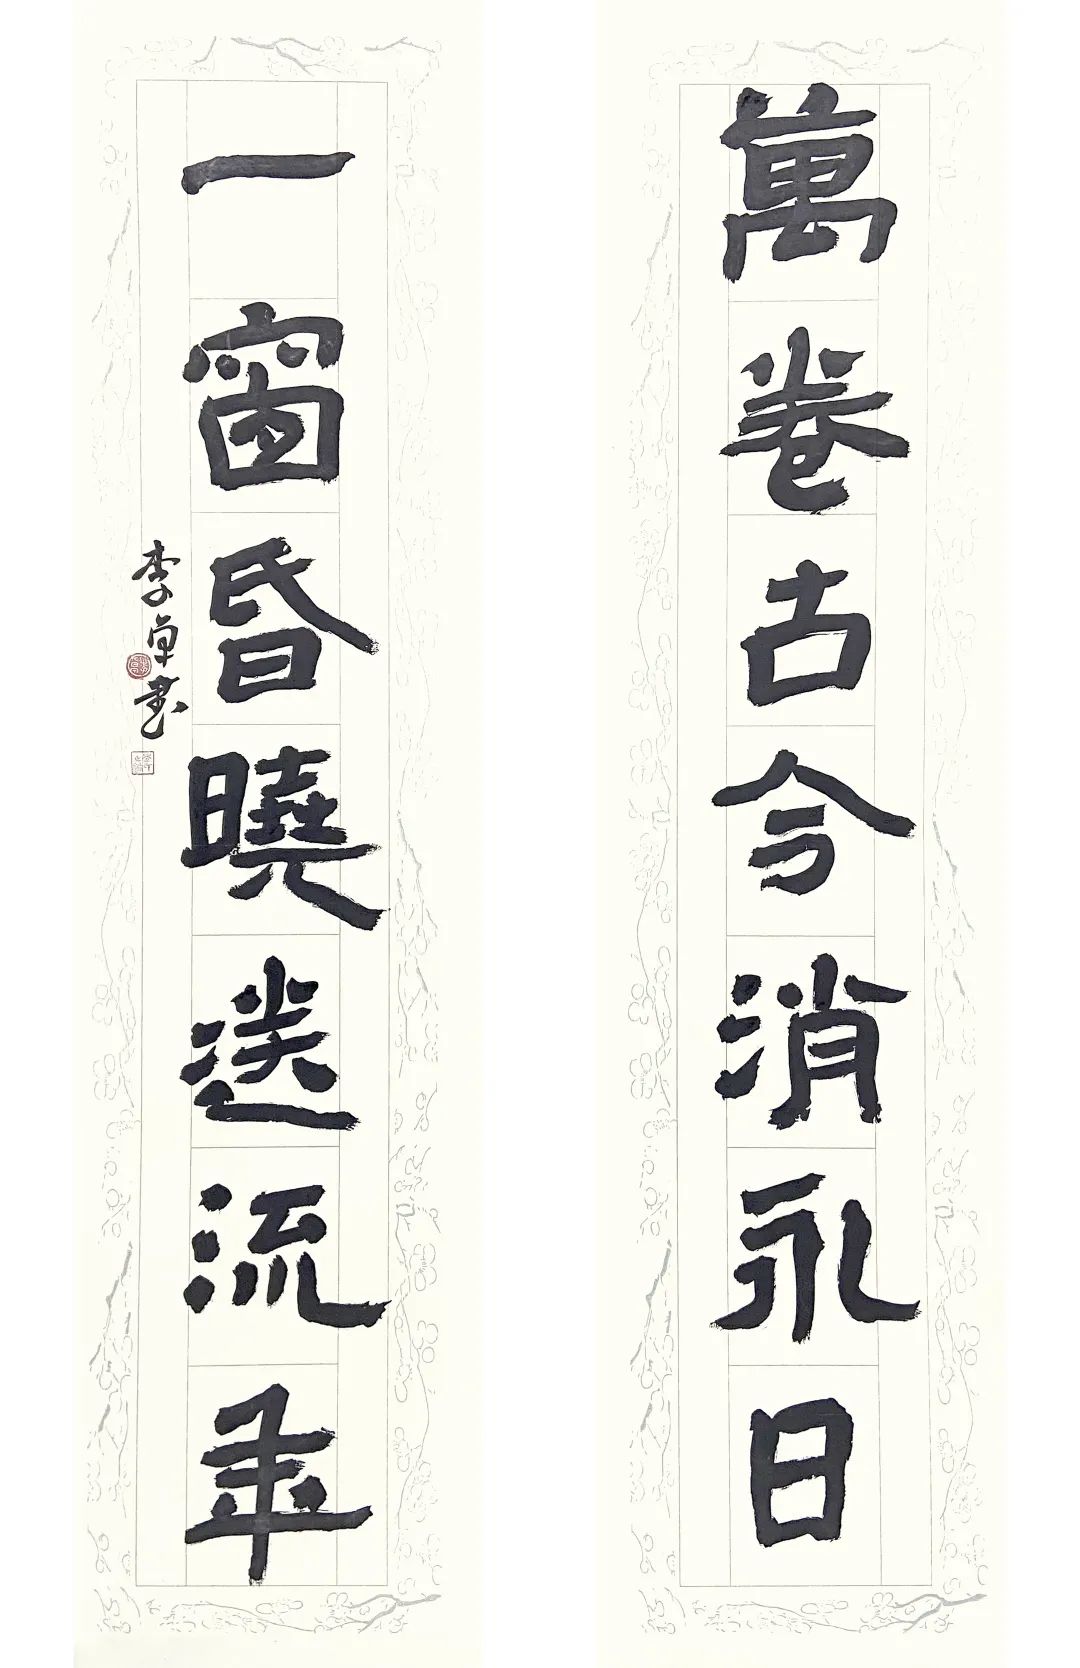 萬卷古今消永日
一窗昏曉送流年
李卓書